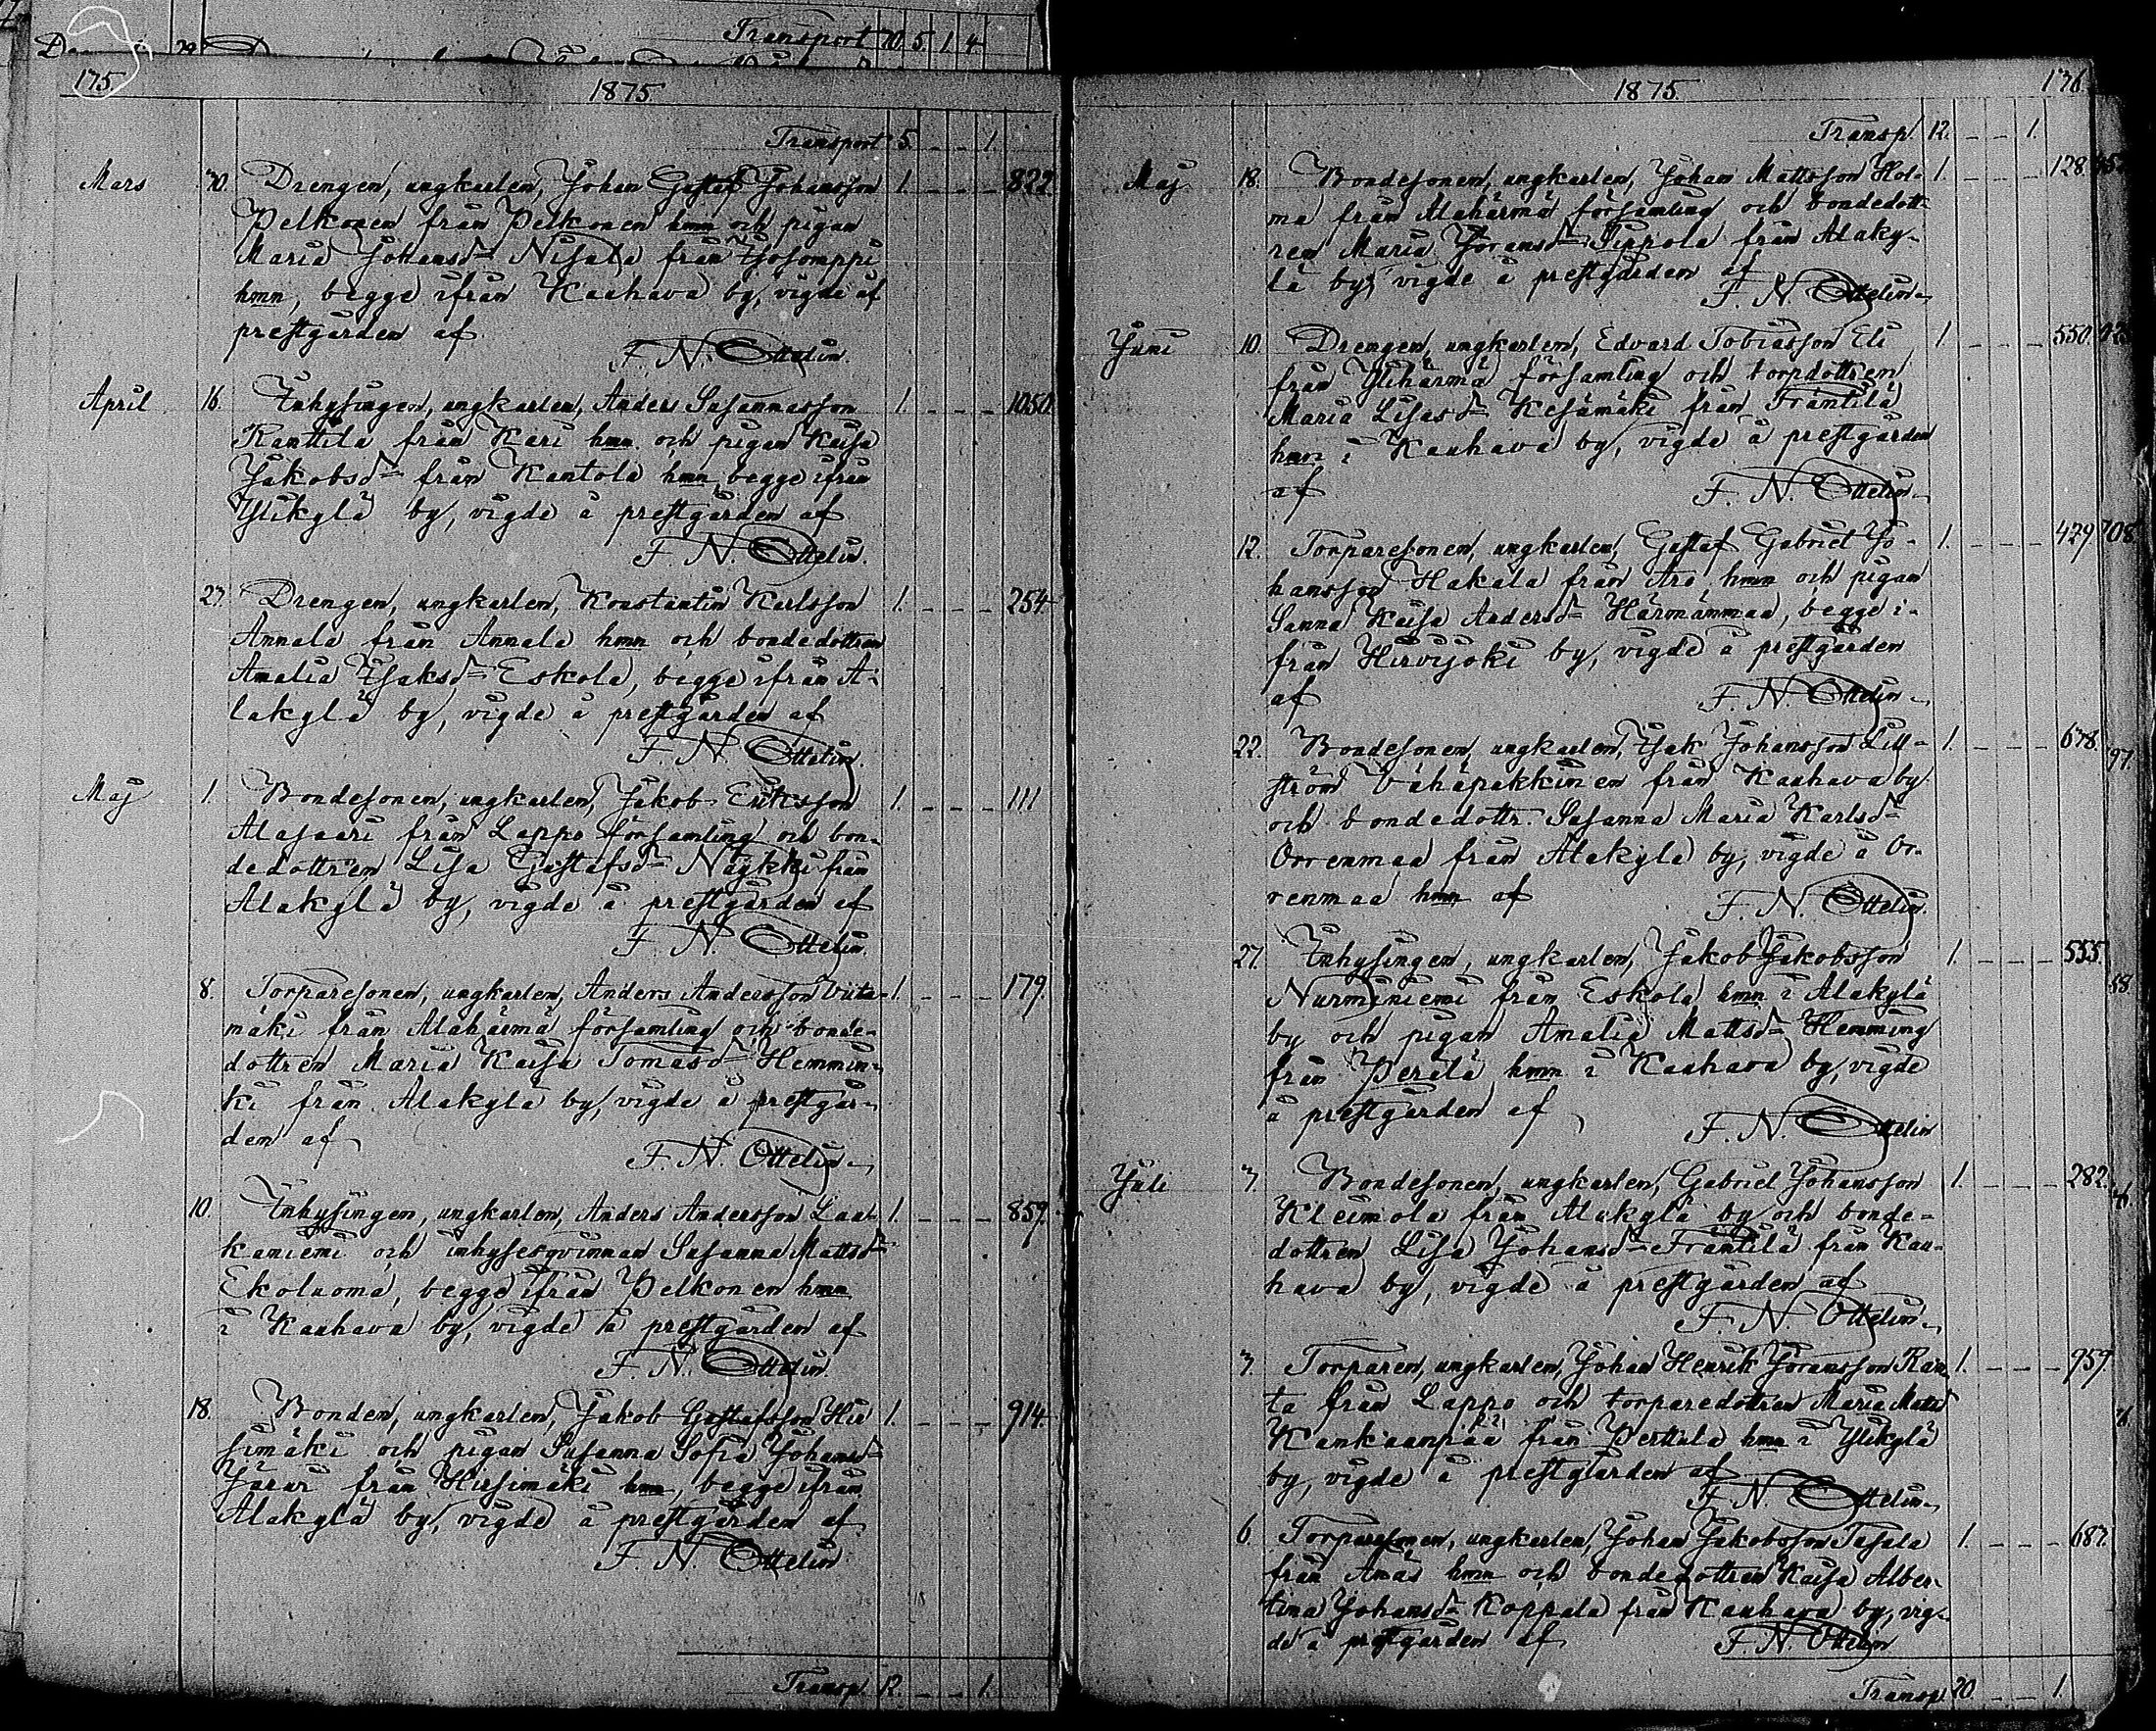 Transport 70. 5. 1. 4.
29.
175.
1875
Transport 5. _ _ 1.
Mars 30. Drengen, ungkarlen, Johan Gustaf Johansson 1. _ _ _ 822
Pelkonen från Pelkonen hmn och pigan
Maria Johansd= Nisula från
hmn, begge ifrån Kauhava by, vigde af
prestgården af
F. N. Ottelin.
April 16. Inhysingen, ungkarlen, Anders Susannasson 1. _ _ _ 1050.
Ranttila från Kari hmn och pigan Kaisa
Jakobsd= från Kantola hmn, begge ifrån
Ylikylä by, vigde å prestgården af
F. N. Ottelin.
27. Drengen, ungkarlen, Konstantin Karlsson 1. _ _ _ 254
Annala från Annala hmn och bondedottren
Amalia Isaksd= Eskola, begge ifrån A-
lakylä by, vigde å prestgården af
F. N. Ottelin.
Maj 1. Bondesonen, ungkarlen, Jakob Eriksson 1. _ _ _ 111
Alasaari från Lappo församling och bon-
dedottren Lisa Gustafsd= Näykki från
Alakylä by, vigde å prestgården af
F. N. Ottelin.
8. Torparesonen, ungkarlen, Anders Andersson Viita- 1. _ _ _ 179.
mäki från Alahärmä församling och bonde-
dottren Maria Kaisa Tomasd= Hemmin-
ki från Alakylä by, vigde å prestgår-
den af
F. N. Ottelin.
10. Inhysingen, ungkarlen, Anders Andersson Laa- 1. _ _ _ 859.
kaniemi och inhysesqvinnan Susanna Mattsd=
Ekoluoma, begge ifrån Pelkonen hmn
i Kauhava by, vigde å prestgården af
F. N. Ottelin.
18. Bonden, ungkarlen, Jakob Gustafsson Hir 1. _ _ _ 914.
simäki och pigan Susanna Sofia Johansd=
från Hirsimäki hmn, begge ifrån
Alakylä by, vigde å prestgården af
F. N. Ottelin
Transp. 12. _ _ 1.
1875. 176.
Transp. 12. _ _ 1.
Maj 18. Bondesonen, ungkarlen, Johan Mattsson Hol- 1. _ _ _ 128.
ma från Alahärmä församling och bondedott-
ren Maria Göransd= Pippola från Alaky-
lä by, vigde å prestgården af
F. N. Ottelin
Juni 10. Drengen, ungkarlen, Edvard Tobiasson Eli 1. _ _ _ 550.
från Ylihärmä församling och torpdottren
Maria Lisasd= Kesämäki från Frantilä
hmn i Kauhava by, vigde å prestgården
af F. N. Ottelin
12. Torparesonen, ungkarlen, Gustaf Gabriel Jo- 1. _ _ _ 429
hansson Hakala från Aro hmn och pigan
Sanna Kaisa Andersd= Härmänmaa, begge i-
från Hirvijoki by, vigde å prestgården
af F. N. Ottelin
22. Bondesonen, ungkarlen, Isak Johansson Lill- 1. _ _ _ 678.
ström Vähäpakkinen från Kauhava by
och bondedottr. Susanna Maria Karlsd=
Orrenmaa från Alakylä by, vigde å Or-
renmaa hmn af F. N. Ottelin.
27. Inhysingen, ungkarlen, Jakob Jakobsson 1. _ _ _ 555.
Nurminiemi från Eskola hmn i Alakylä
by och pigan Amalia Mattsd= Hemming
från Perälä hmn i Kauhava by, vigde
å prestgården af
F. N. Ottelin
Juli 3. Bondesonen, ungkarlen, Gabriel Johansson 1. _ _ _ 282.
Kleimola från Alakylä by och bonde-
dottren Lisa Johansd= Frantilä från Kau-
hava by, vigde å prestgården af
F. N. Ottelin
3. Torparen, ungkarlen, Johan Henrik Göransson Ran 1. _ _ _ 959
ta från Lappo och torparedottren Maria Mattsd
Kankaanpää från Perttula hmn i Ylikylä
by, vigde å prestgården af
F. N. Ottelin
6. Torparesonen, ungkarlen, Johan Jakobsson Tasala 1. _ _ _ 687.
från Amas hmn och bondedottren Kaisa Alber-
tina Johansd= Koppala från Kauhava by, vig-
de å prestgården af F. N. Ottelin
Transp. 20. _ _ 1.